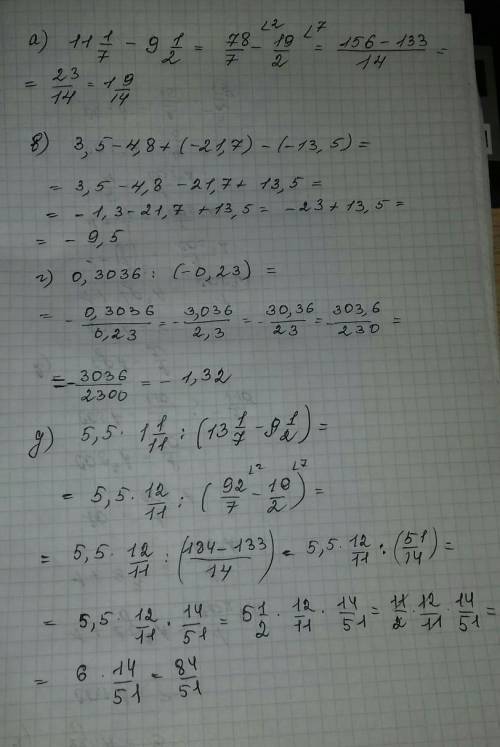 а) 11 1/7 - 9 1/2 = 78/7 ∠2 - 19/2 ∠7 = 156-133/14 =
= 23/14 = 1 9/14
в) 3,5-4,8+(-21,7)-(-13,5)=
= 3,5-4,8-21,7+13,5=
= -1,3-21,7+13,5= -23+13,5=
= -9,5
г) 0,3036 : (-0,23) =
= - 0,3036/0,23 = - 3,036/2,3 = - 30,36/23 = 303,6/230 =
= - 3036/2300 = - 1,32
д) 5,5 · 1 1/11 : (13 1/7 - 9 1/2) =
= 5,5 · 12/11 : (92/7 ∠2 - 19/2 ∠7) =
= 5,5 · 12/11 : (184-133/14) = 5,5 · 12/11 : (51/14) =
= 5,5 · 12/11 · 14/51 = 5 1/2 · 12/11 · 14/51 = 11/2 · 12/11 · 14/51 =
= 6 · 14/51 = 84/51